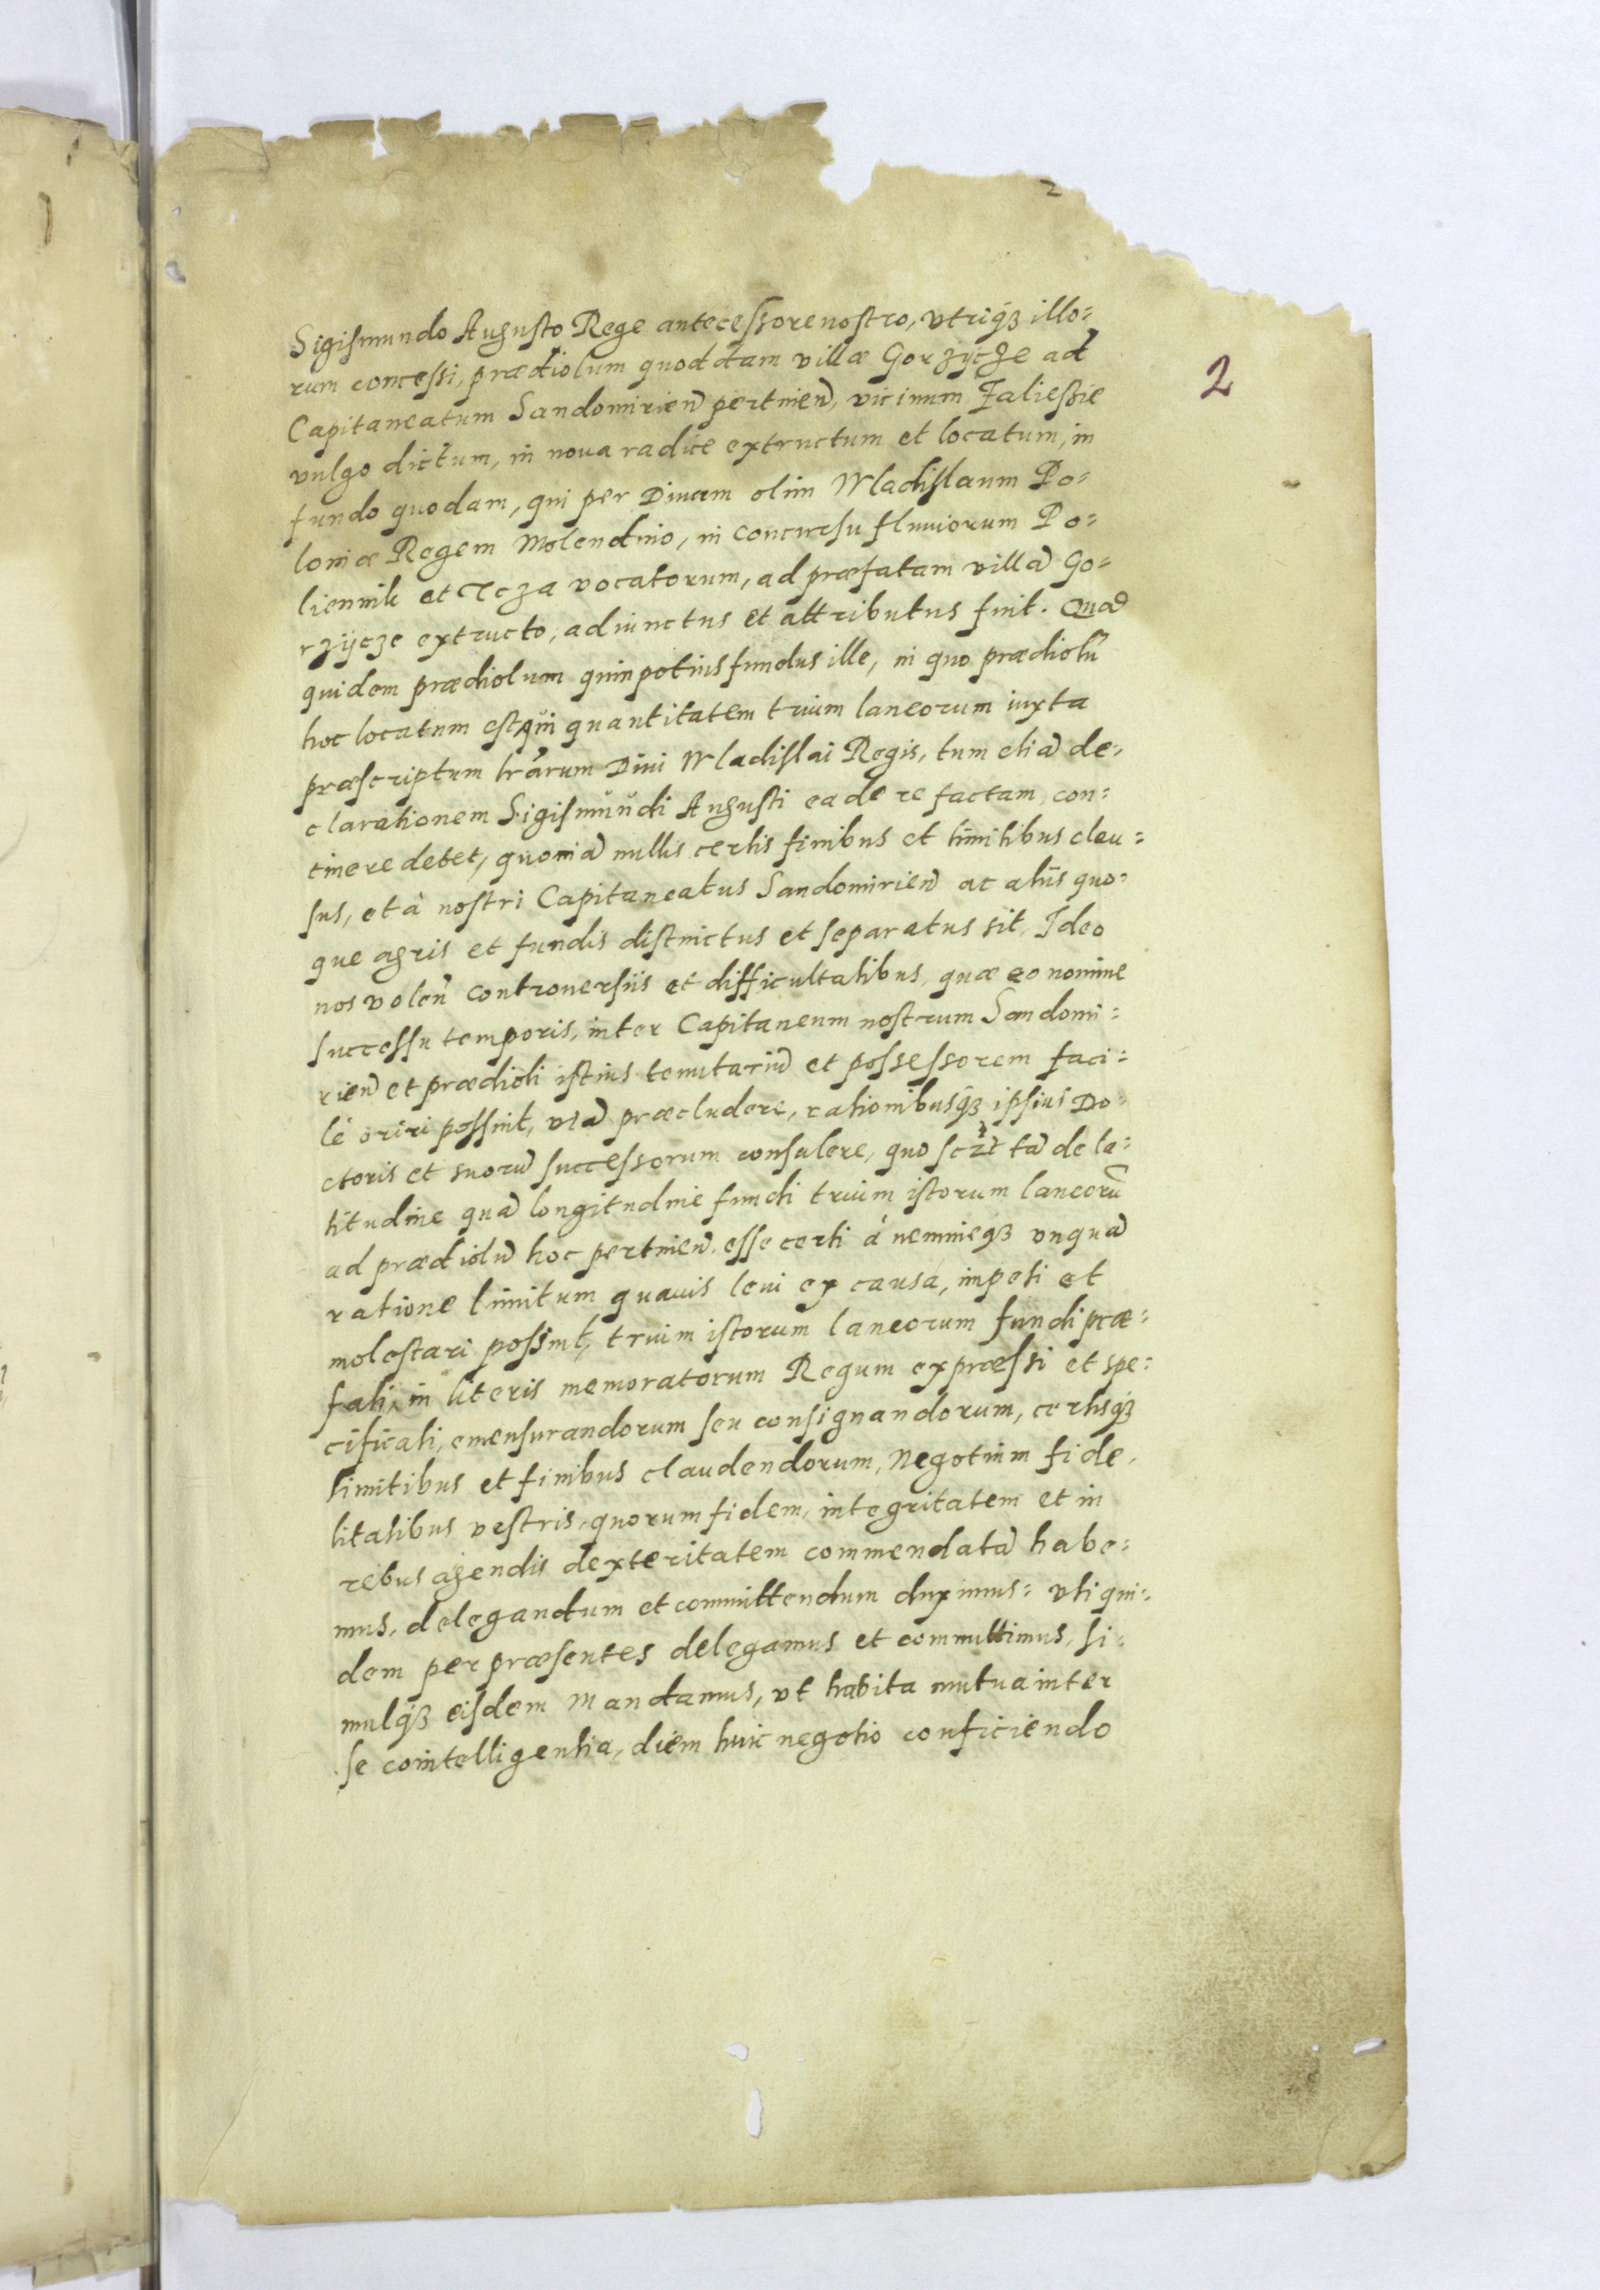 2
2
Sigismundo Augusto Rege antecessore nostro, vtriq₃ illo=
rum concessi, prædiolum quoddam villæ Gorzÿcze ad
Capitaneatum Sandomirien pertinen, vicinum Zaliessie
vulgo dictum, in noua radice extructum et locatum, in
fundo quodam, qui per Diuum olim Wladislaum Po=
loniæ Regem Molendino, in concursu fluuiorum Po=
liennik et Icza vocatorum, ad præfatam villã Go=
rzÿcze extructo, adiunctus et attributus fuit. Quod
quidem prædiolum quinpotius fundus ille, in quo prædiolũ
hoc locatum est, qui quantitatem trium laneorum iuxta
præscriptum lrãrum Diui Wladislai Regis, tum etiã de=
clarationem Sigismundi Augusti ea de re factam, con=
tinere debet, quoniã nullis certis finibus et limitibus clau=
sus, et à nostri Capitaneatus Sandomirien ac aliis quo=
que agris et fundis distinctus et separatus sit, Ideo
nos volen controuersiis et difficultatibus, quæ eo nomine
successu temporis, inter Capitaneum nostrum Sandomi=
rien et prædioli istius tenutariũ et possessorem faci=
lè oriri possint, viã præcludere, rationibusq₃ ipsius Do=
ctoris et suorũ successorum consulere, quo sczt tã de la=
titudine quã longitudine fundi trium istorum laneorũ
ad prædiolũ hoc pertinen. esse certi à nemineq₃ vnquã
ratione limitum quauis leui ex causa, impeti et
molestari possint, trium istorum laneorum fundi præ=
fati, in literis memoratorum Regum expræssi et spe=
cificati, emensurandorum seu consignandorum, certisq₃
limitibus et finibus claudendorum, Negotium fide,
litatibus vestris, quorum fidem, integritatem et in
rebus agendis dexteritatem commendatã habe=
mus, delegandum et committendum duximus: vti qui=
dem per præsentes delegamus et committimus, si=
mulq₃ eisdem Mandamus, vt habita mutua inter
se cointelligentia, diem huic negotio conficiendo